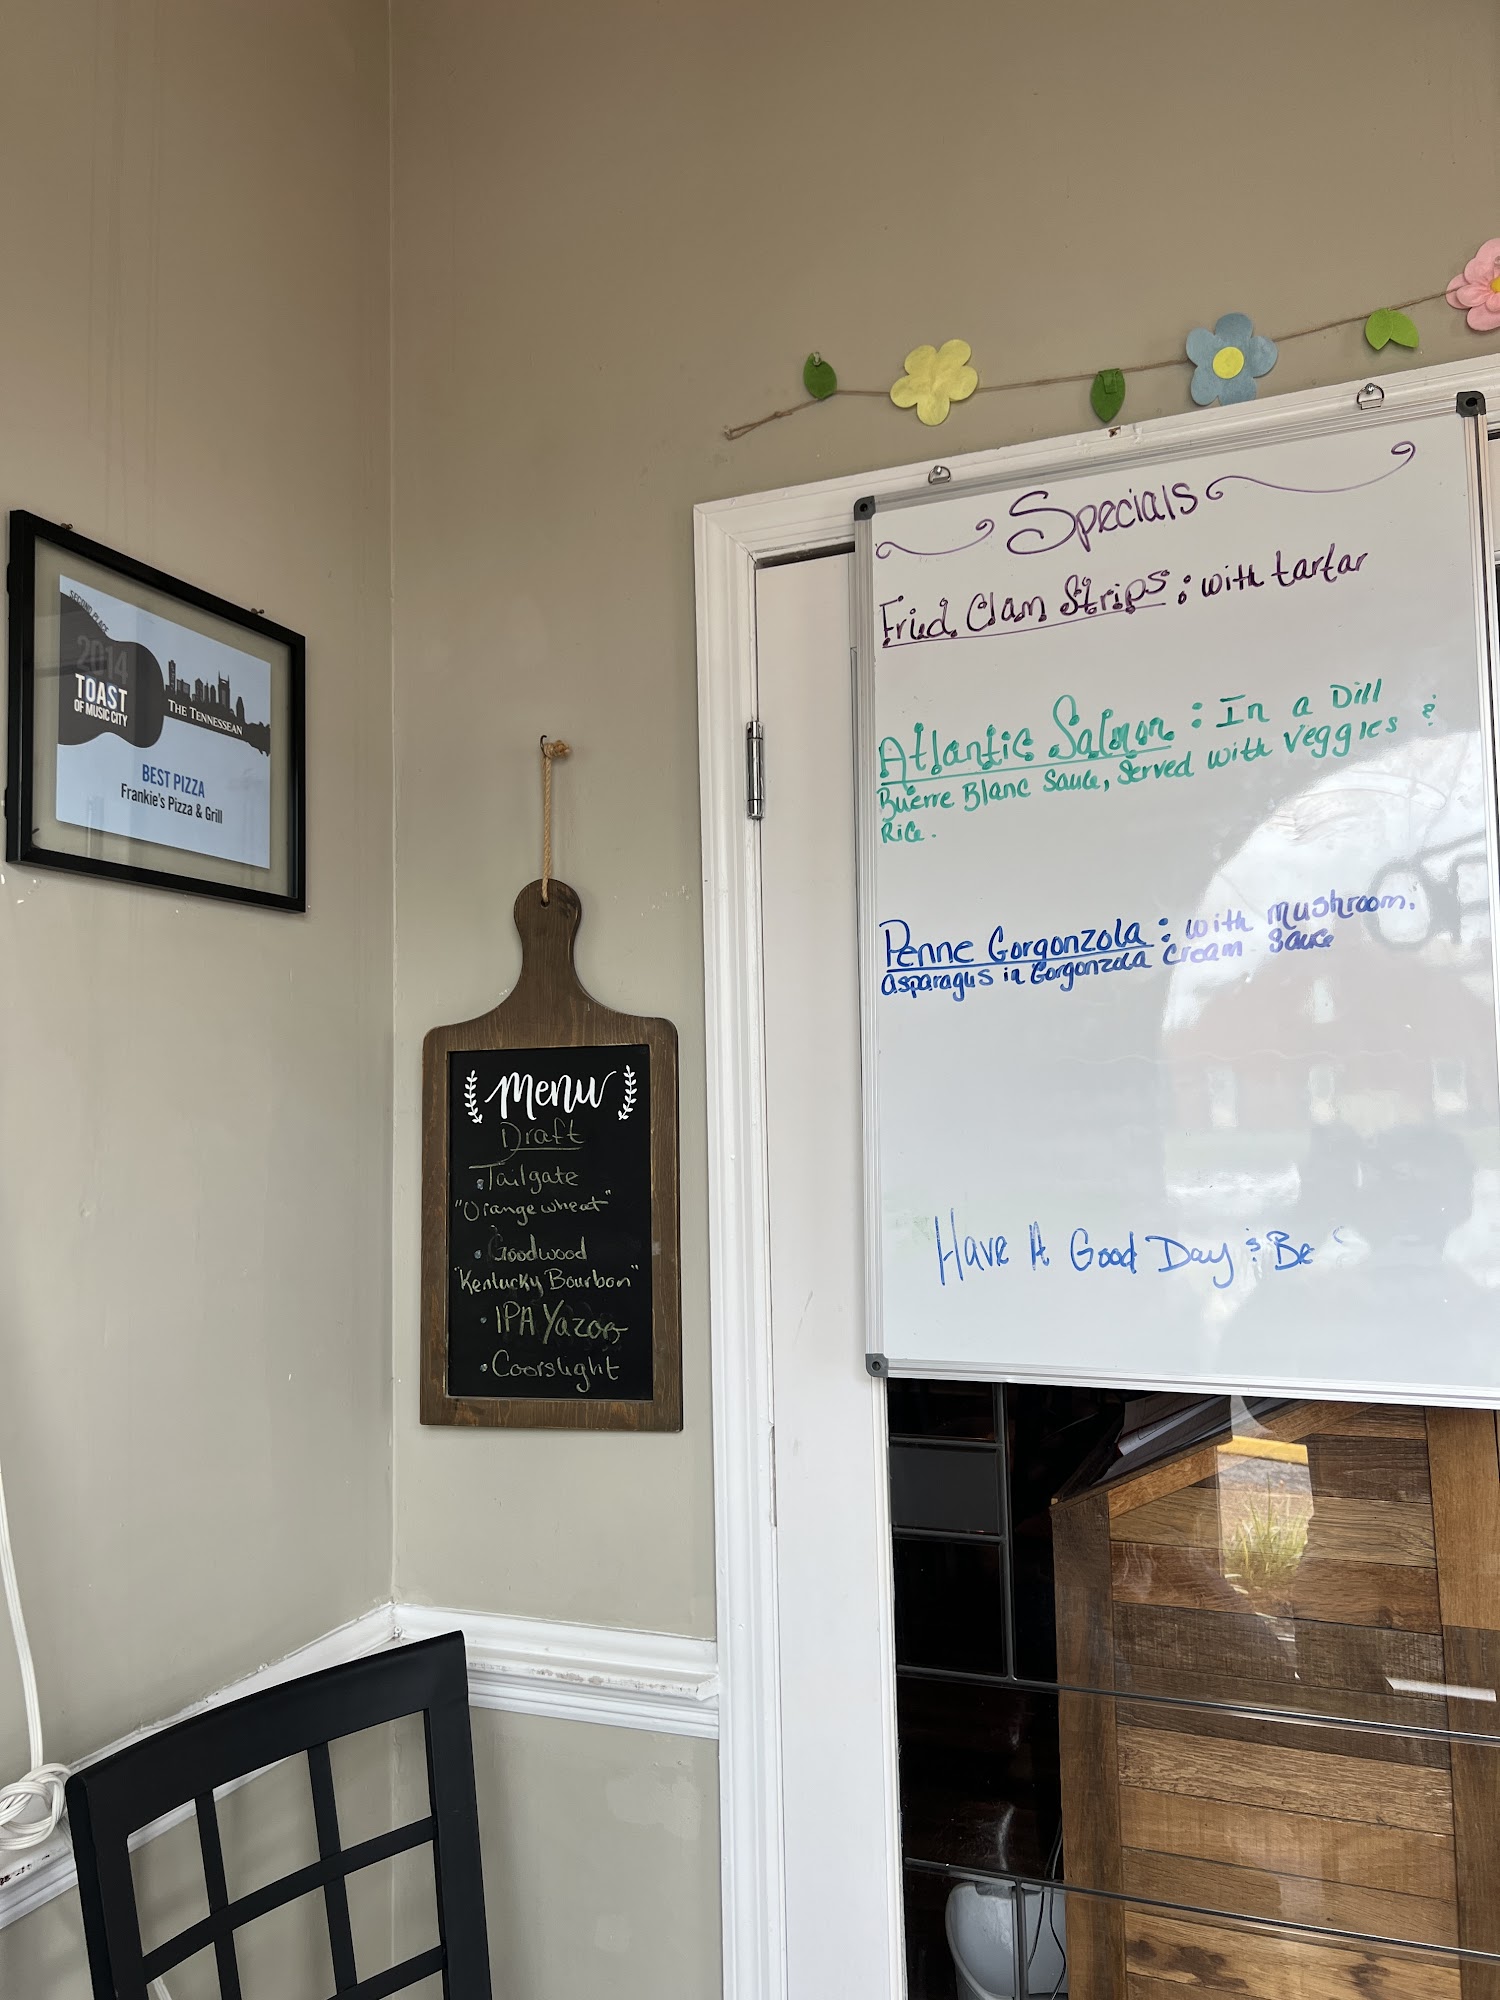 SECOND PLACE
2014
TOAST
OF MUSIC CITY
THE TENNESSEAN
BEST PIZZA
Frankie's Pizza & Grill
Menu
Draft
• Tailgate
"Orange wheat"
• Goodwood
"Kentucky Bourbon"
• IPA Yazoo
• Coorslight
Specials
Fried Clam Strips : with tartar
Atlantic Salmon : In a Dill
Buerre Blanc Sauce, Served with Veggies &
Rice.
Penne Gorgonzola : with mushroom,
asparagus in Gorgonzola Cream Sauce
Have A Good Day & Be